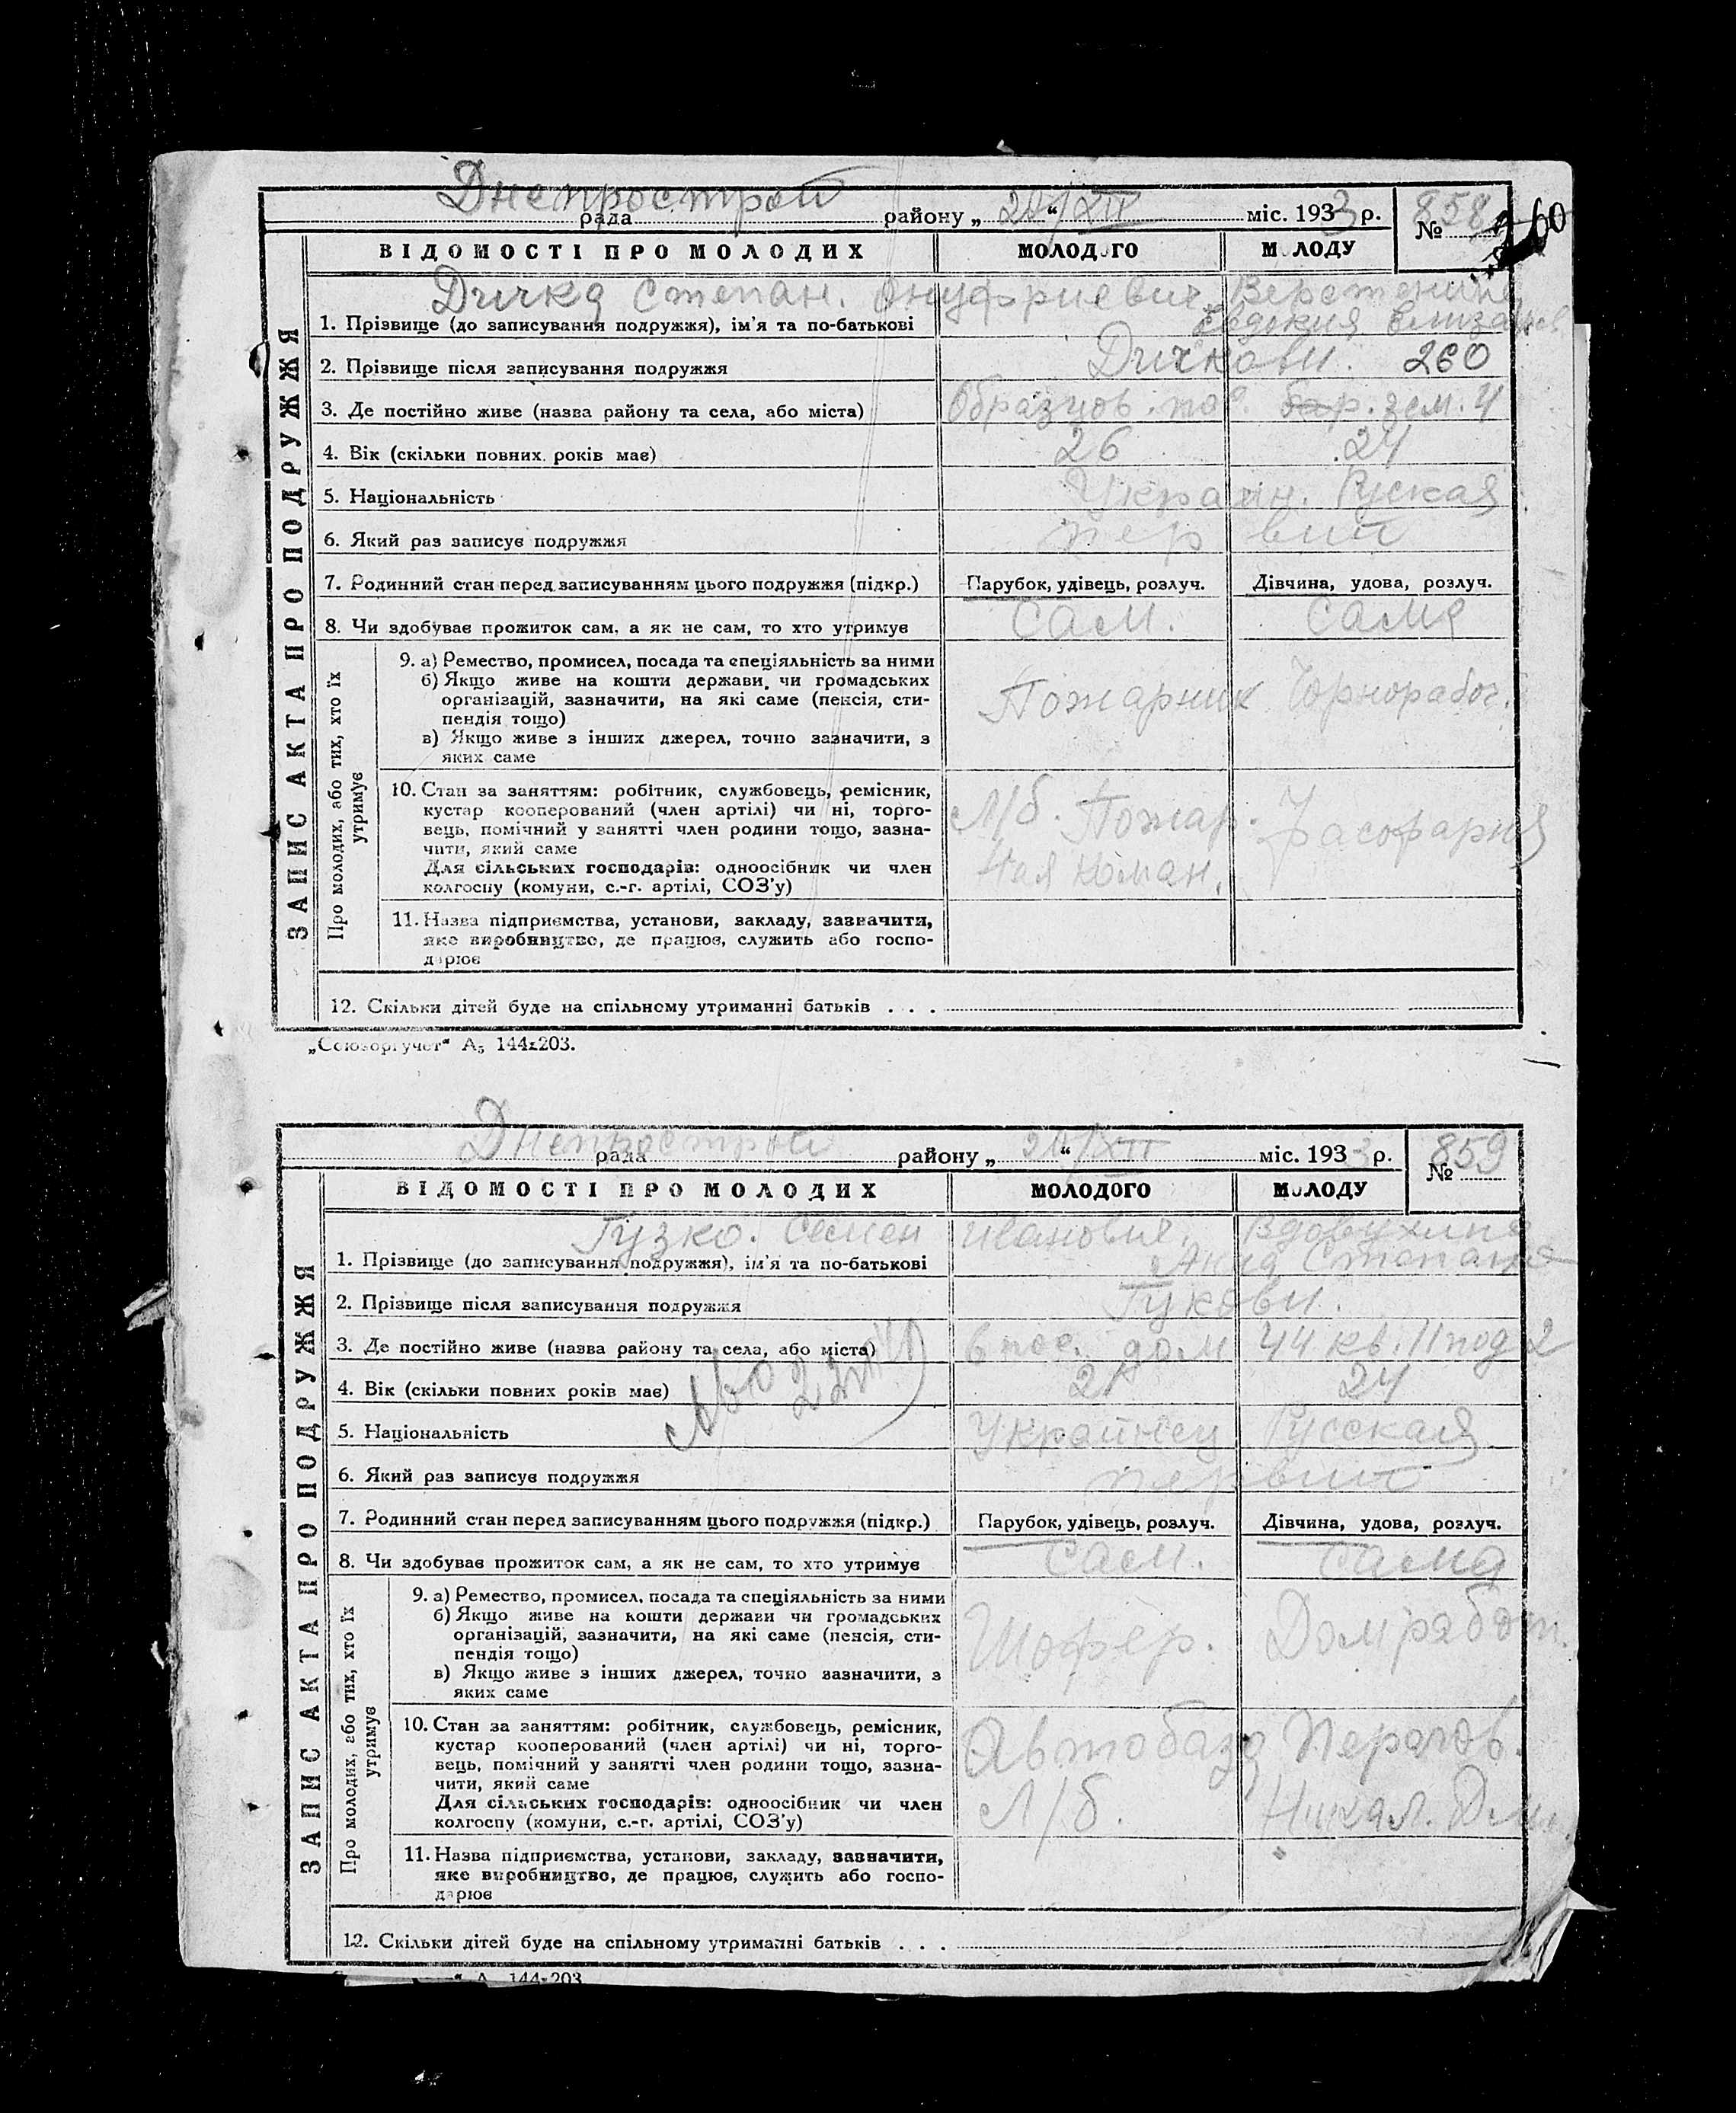 Днепрострой
рада району „ 20 “ XII міс. 1933 р. № 858
260
ВІДОМОСТІ ПРО МОЛОДИХ МОЛОДОГО МОЛОДУ
ЗАПИС АКТА ПРО ПОДРУЖЖЯ
Дичка Степан. Онуфриевич
Евдокия
1. Прізвище (до записування подружжя), ім'я та по-батькові
2. Прізвище після записування подружжя Дичкови. 260
3. Де постійно живе (назва району та села, або міста) Образцов. пос. бар. зем. 4
4. Вік (скільки повних років має) 26 24
5. Національність Украин. Руская
6. Який раз записує подружжя первий
7. Родинний стан перед записуванням цього подружжя (підкр.) Парубок, удівець, розлуч. Дівчина, удова, розлуч.
8. Чи здобуває прожиток сам, а як не сам, то хто утримує Сам. Сама
Про молодих, або тих, хто їх утримує
9. а) Ремество, промисел, посада та спеціяльність за ними
б) Якщо живе на кошти держави чи громадських
організацій, зазначити, на які саме (пенсія, сти-
пендія тощо)
Пожарник Чорнорабоч.
в) Якщо живе з інших джерел, точно зазначити, з
яких саме
10. Стан за заняттям: робітник, службовець, ремісник,
кустар кооперований (член артілі) чи ні, торго-
вець, помічний у занятті член родини тощо, зазна-
чити, який саме
Л/б. Пожар
ная коман.
Для сільських господарів: одноосібник чи член
колгоспу (комуни, с.-г. артілі, СОЗ'у)
11. Назва підприємства, установи, закладу, зазначити,
яке виробництво, де працює, служить або госпо-
дарює
12. Скільки дітей буде на спільному утриманні батьків . . .
„Союзоргучет“ А5 144х203.
Днепрострой
рада району „ 20 “ XII міс. 1933 р. № 859
ВІДОМОСТІ ПРО МОЛОДИХ МОЛОДОГО МОЛОДУ
ЗАПИС АКТА ПРО ПОДРУЖЖЯ
Гузко. Семен Иванович.
Анна Степано
1. Прізвище (до записування подружжя), ім'я та по-батькові
2. Прізвище після записування подружжя
3. Де постійно живе (назва району та села, або міста) 6 пос. дом 44 кв. 11 под 2
4. Вік (скільки повних років має) 24
5. Національність Украинец Русская
6. Який раз записує подружжя первий
7. Родинний стан перед записуванням цього подружжя (підкр.) Парубок, удівець, розлуч. Дівчина, удова, розлуч.
8. Чи здобуває прожиток сам, а як не сам, то хто утримує сам. сама
Про молодих, або тих, хто їх утримує
9. а) Ремество, промисел, посада та спеціяльність за ними
б) Якщо живе на кошти держави чи громадських
організацій, зазначити, на які саме (пенсія, сти-
пендія тощо)
Шофер. Домработ.
в) Якщо живе з інших джерел, точно зазначити, з
яких саме
10. Стан за заняттям: робітник, службовець, ремісник,
кустар кооперований (член артілі) чи ні, торго-
вець, помічний у занятті член родини тощо, зазна-
чити, який саме
Автобаза
Л/б.
Для сільських господарів: одноосібник чи член
колгоспу (комуни, с.-г. артілі, СОЗ'у)
11. Назва підприємства, установи, закладу, зазначити,
яке виробництво, де працює, служить або госпо-
дарює
12. Скільки дітей буде на спільному утриманні батьків . . .
“ А 144х203